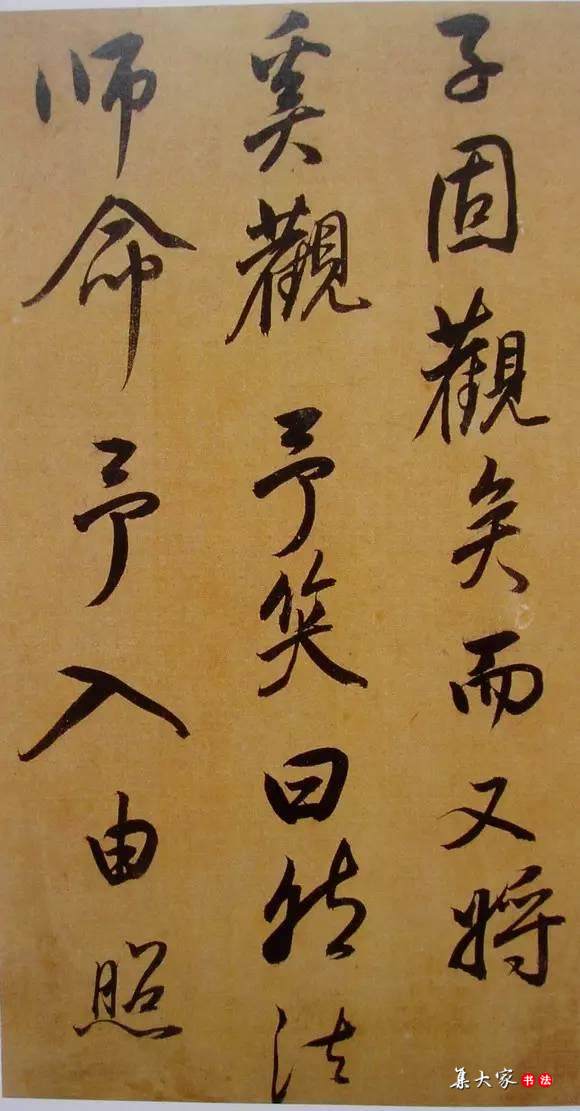 子固觀矣而又將
奚觀予笑曰然法
师命予入由照
集大家书法